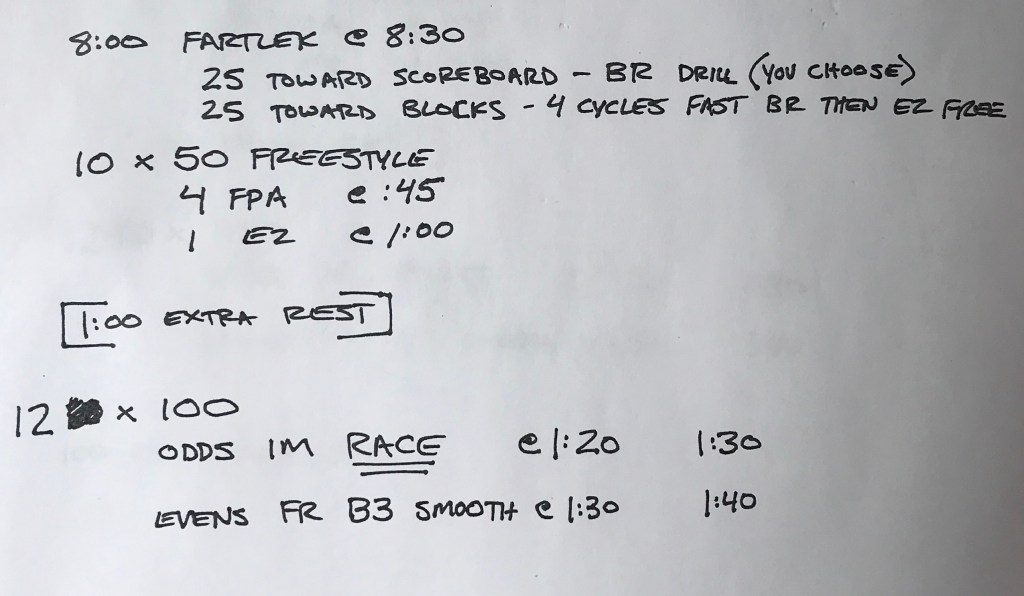 8:00 FARTLEK @ 8:30
25 TOWARD SCOREBOARD - BR DRILL (YOU CHOOSE)
25 TOWARD BLOCKS - 4 CYCLES FAST BR THEN EZ FREE
10 x 50 FREESTYLE
4 FPA @ :45
1 EZ @ 1:00
[1:00 EXTRA REST]
12 x 100
ODDS IM RACE @ 1:20 1:30
EVENS FR B3 SMOOTH @ 1:30 1:40